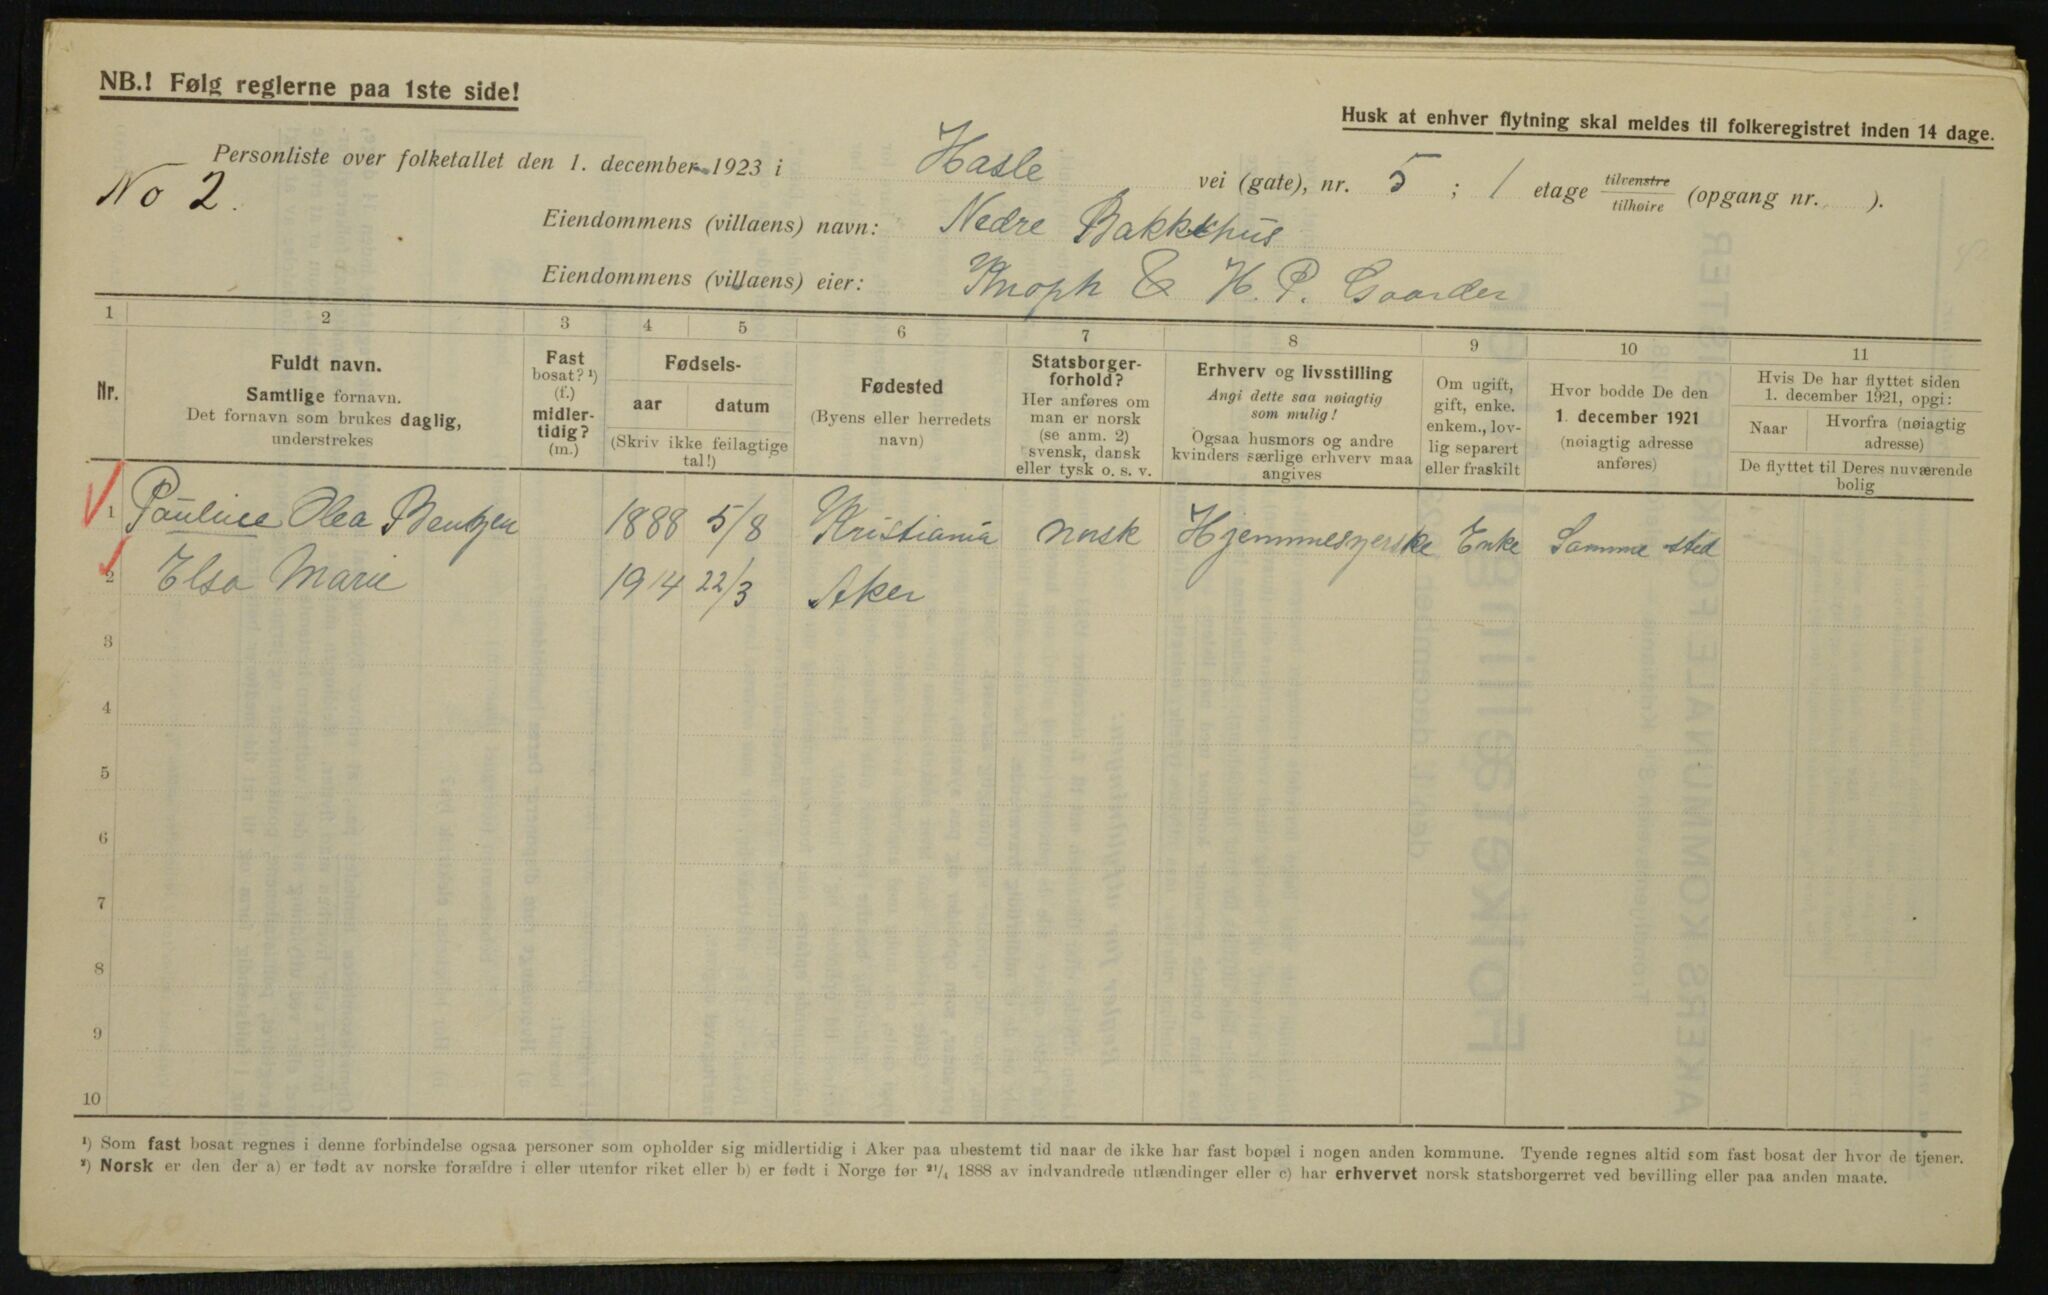 NB.! Følg reglerne paa 1ste side!
Husk at enhver flytning skal meldes til folkeregistret inden 14 dage.
Personliste over folketallet den 1. december 1923 i Hasle vei (gate), nr. 5 ; 1 etage tilvenstre tilhøire (opgang nr. ).
No 2.
Eiendommens (villaens) navn: Nedre Bakkehus
Eiendommens (villaens) eier: Knoph & H. P. Gaarder
1 2 3 4 5 6 7 8 9 10 11
Nr.
Fuldt navn.
Samtlige fornavn.
Det fornavn som brukes daglig,
understrekes
Fast
bosat? ¹)
(f.)
midler-
tidig?
(m.)
Fødsels-
aar datum
(Skriv ikke feilagtige
tal!)
Fødested
(Byens eller herredets
navn)
Statsborger-
forhold?
Her anføres om
man er norsk
(se anm. 2)
svensk, dansk
eller tysk o. s. v.
Erhverv og livsstilling
Angi dette saa nøiagtig
som mulig!
Ogsaa husmors og andre
kvinders særlige erhverv maa
angives
Om ugift,
gift, enke.
enkem., lov-
lig separert
eller fraskilt
Hvor bodde De den
1. december 1921
(nøiagtig adresse
anføres)
Hvis De har flyttet siden
1. december 1921, opgi:
Naar
Hvorfra (nøiagtig
adresse)
De flyttet til Deres nuværende
bolig
1 Pauline Olea Bentzen 1888 5/8 Kristiania norsk Hjemmesyerske Enke Samme sted
2 Elsa Marie 1914 22/3 Aker
3
4
5
6
7
8
9
10
¹) Som fast bosat regnes i denne forbindelse ogsaa personer som opholder sig midlertidig i Aker paa ubestemt tid naar de ikke har fast bopæl i nogen anden kommune. Tyende regnes altid som fast bosat der hvor de tjener.
²) Norsk er den der a) er født av norske forældre i eller utenfor riket eller b) er født i Norge før ²¹/₄ 1888 av indvandrede utlændinger eller c) har erhvervet norsk statsborgerret ved bevilling eller paa anden maate.